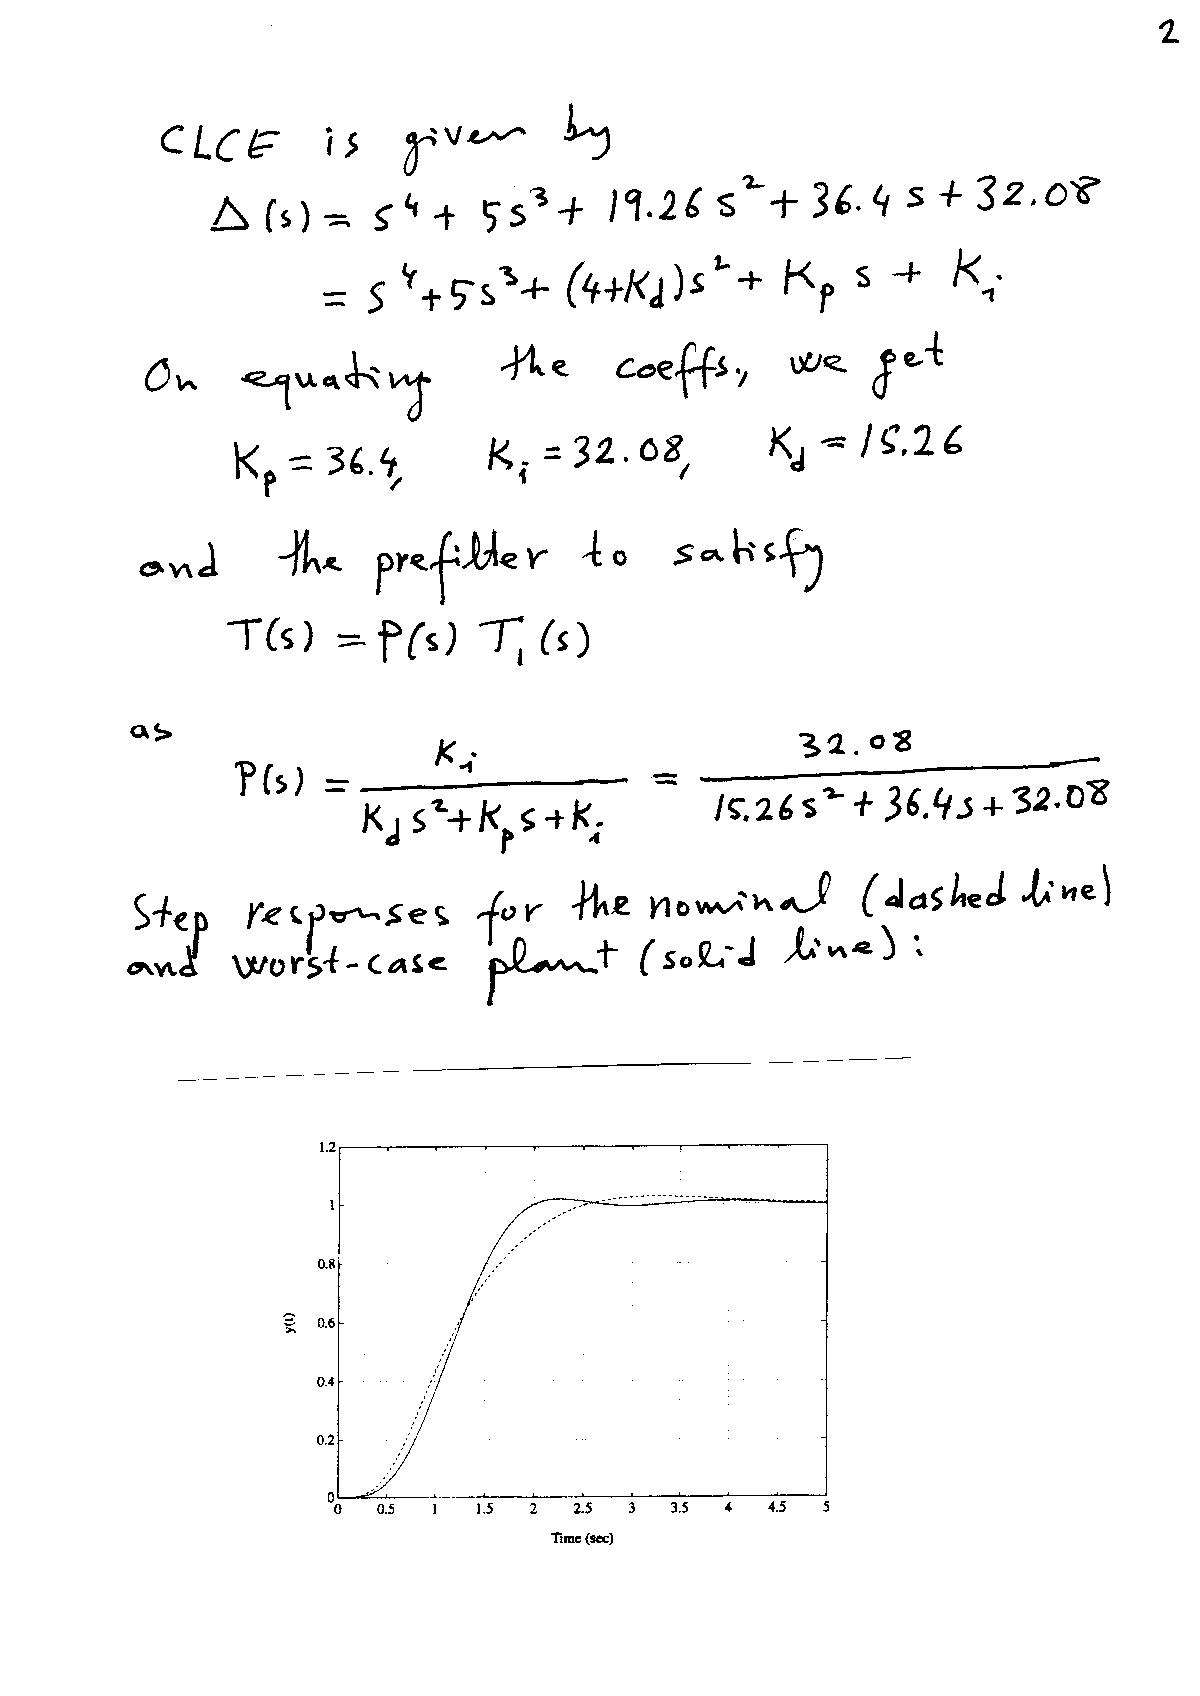 2
CLCE is given by
Δ(s) = s⁴ + 5s³ + 19.26 s² + 36.4 s + 32.08
= s⁴ + 5s³ + (4+K_d)s² + K_p s + K_i
On equating the coeffs., we get
K_p = 36.4, K_i = 32.08, K_d = 15.26
and the prefilter to satisfy
T(s) = P(s) T₁(s)
as
P(s) = K_i / (K_d s² + K_p s + K_i) = 32.08 / (15.26 s² + 36.4 s + 32.08)
Step responses for the nominal (dashed line)
and worst-case plant (solid line):
1.2
1
0.8
0.6
0.4
0.2
0
y(t)
0 0.5 1 1.5 2 2.5 3 3.5 4 4.5 5
Time (sec)